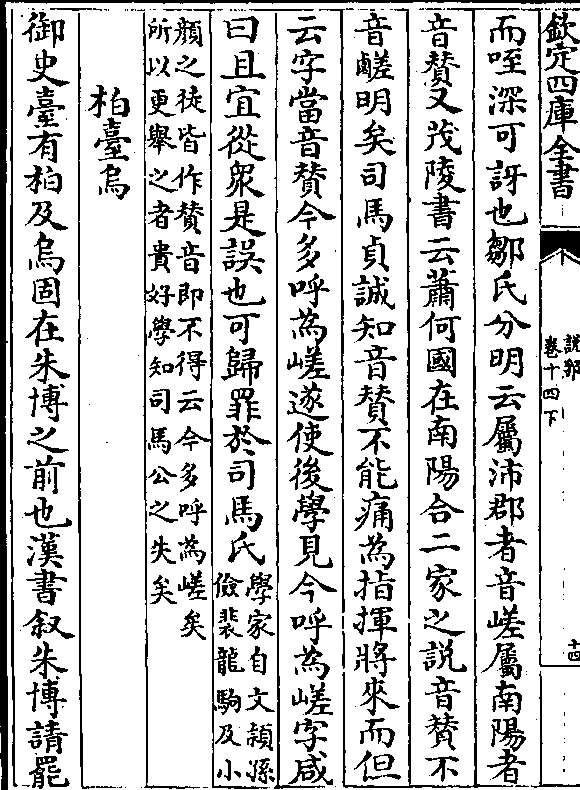 欽定四庫全書
說郛
卷十四下
十四
而咥深可訝也鄒氏分明云屬沛郡者音嵯屬南陽者
音贊又茂陵書云蕭何國在南陽合二家之説音贊不
音鹺明矣司馬貞誠知音贊不能痛為指揮將來而但
云字當音贊今多呼為嵯遂使後學見今呼為嵯字咸
曰且宜從衆是誤也可歸罪於司馬氏
學家自文頴孫
儉裴龍駒及小
顔之徒皆作贊音即不得云今多呼為嵯矣
所以更舉之者貴好學知司馬公之失矣
柏臺烏
御史臺有柏及烏固在朱博之前也漢書叙朱博請罷